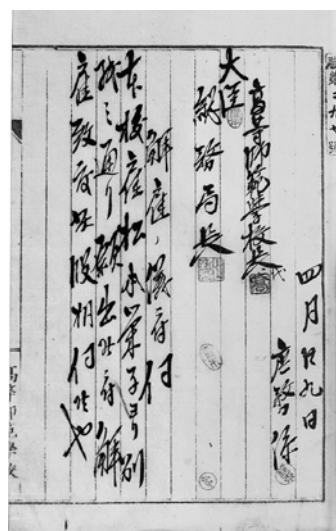 四月廿九日
庶務係
高等師範学校長
大臣
総務局長
解雇ノ儀ニ付伺
本校雇松本 ヨリ別
紙之通リ願出候ニ付解
雇致度此段相伺候也
高等師範学校